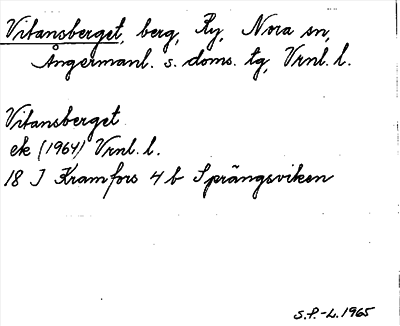 Vitansberget, berg, Ry, Nora sn,
Ångermanl. s. doms. tg, Vrnl. l.
Vitansberget
ek (1964) Vrnl. l.
18 J Kramfors 4 b Sprängsviken
S.P.-L. 1965